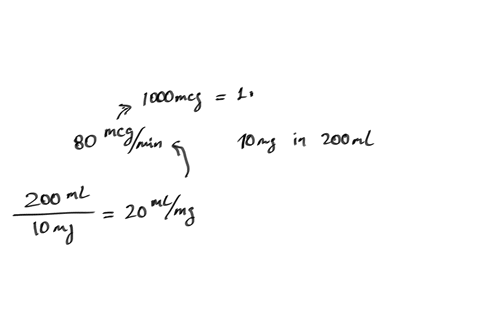 1000mcg = 1.
80 mcg/min
10mg in 200mL
200mL/10mg = 20 mL/mg